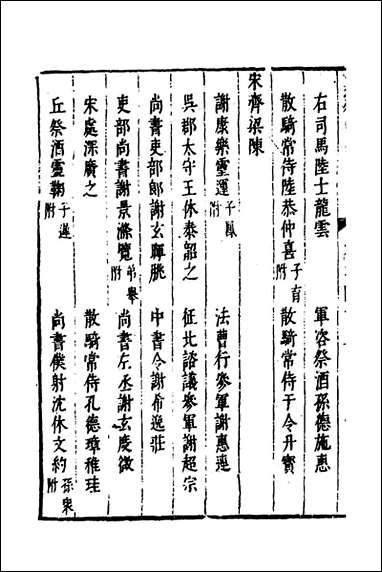 右司馬陸士龍雲　軍咨祭酒孫德施惠
散騎常侍陸恭仲喜子育附　散騎常侍于令升寶
宋齊梁陳
謝康樂靈運子鳳附　法曹行參軍謝惠連
吳郡太守王休泰韶之　征北諮議參軍謝超宗
尚書吏部郎謝玄暉朓　中書令謝希逸莊
吏部尚書謝景滌覽弟舉附　尚書左丞謝玄慶微
宋處深廣之　散騎常侍孔德璋稚珪
丘祭酒靈鞠子遲附　尚書僕射沈休文約孫衆附